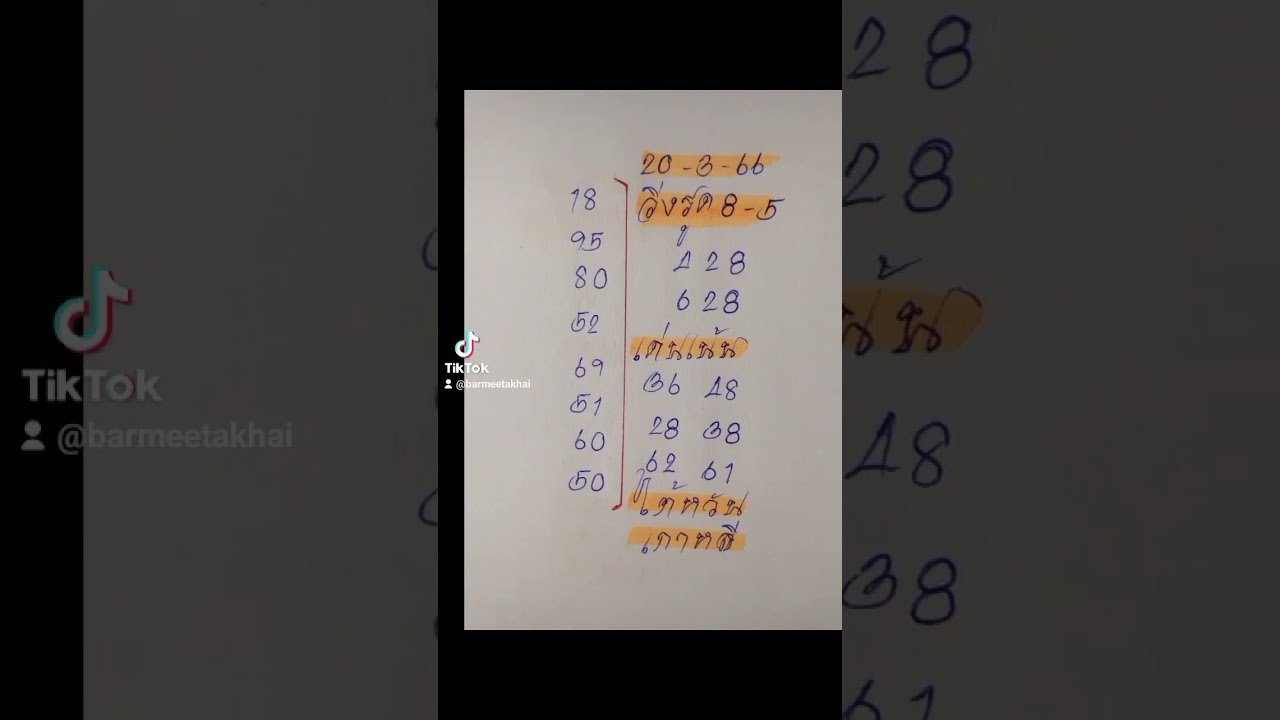 20-3-66
วิ่งรูด 8-5
428
628
เด่นเน้น
36 48
28 38
62 61
ไต้หวัน
เกาหลี
18
95
80
52
69
51
60
50
TikTok
@barmeetakhai
TikTok
@barmeetakhai
28
28
48
38
61